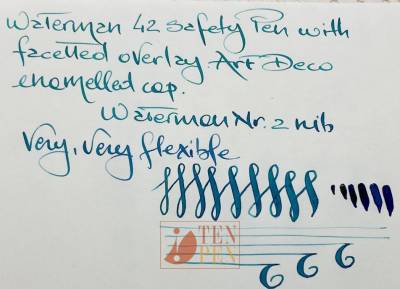 Waterman 42 Safety Pen with
facetted overlay Art Deco
enamelled cap.
Waterman Nr. 2 nib
Very, very flexible
TEN
PEN